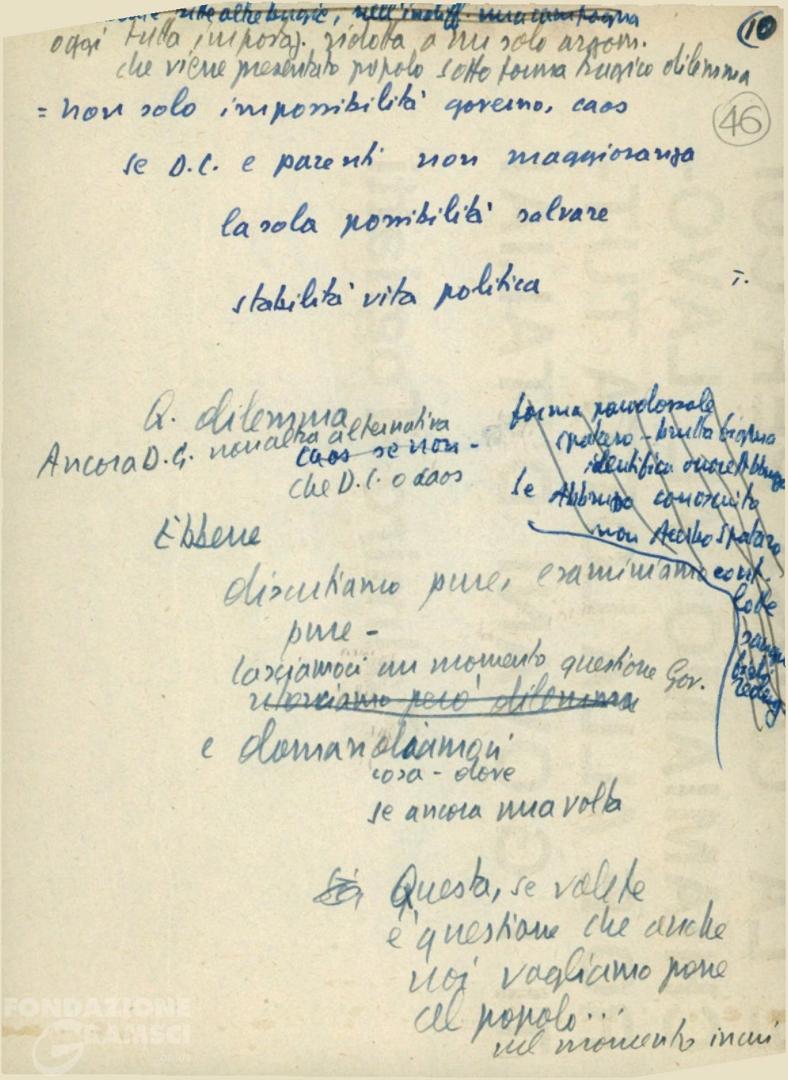 oggi tutta impostaz. ridotta a un solo argom.
che viene presentato popolo sotto forma tragico dilemma
10
46
= non solo impossibilità governo, caos
se D.C. e parenti non maggioranza
la sola possibilità salvare
stabilità vita politica
Q. dilemma
Ancora D.C. non altra alternativa
caos se non -
che D.C. o caos
forma paradossale
Spataro - brutta
identifica onore Abbruzzo
se Abbruzzo conosciuto
non Spataro
Ebbene
discutiamo pure, esaminiamo
cont.
lotte
pure -
lasciamoci un momento questione Gov.
però dilemma
e domandiamoci
cosa - dove
se ancora una volta
Questa, se volete
è questione che anche
noi vogliamo porre
al popolo...
nel momento in cui
FONDAZIONE
GRAMSCI